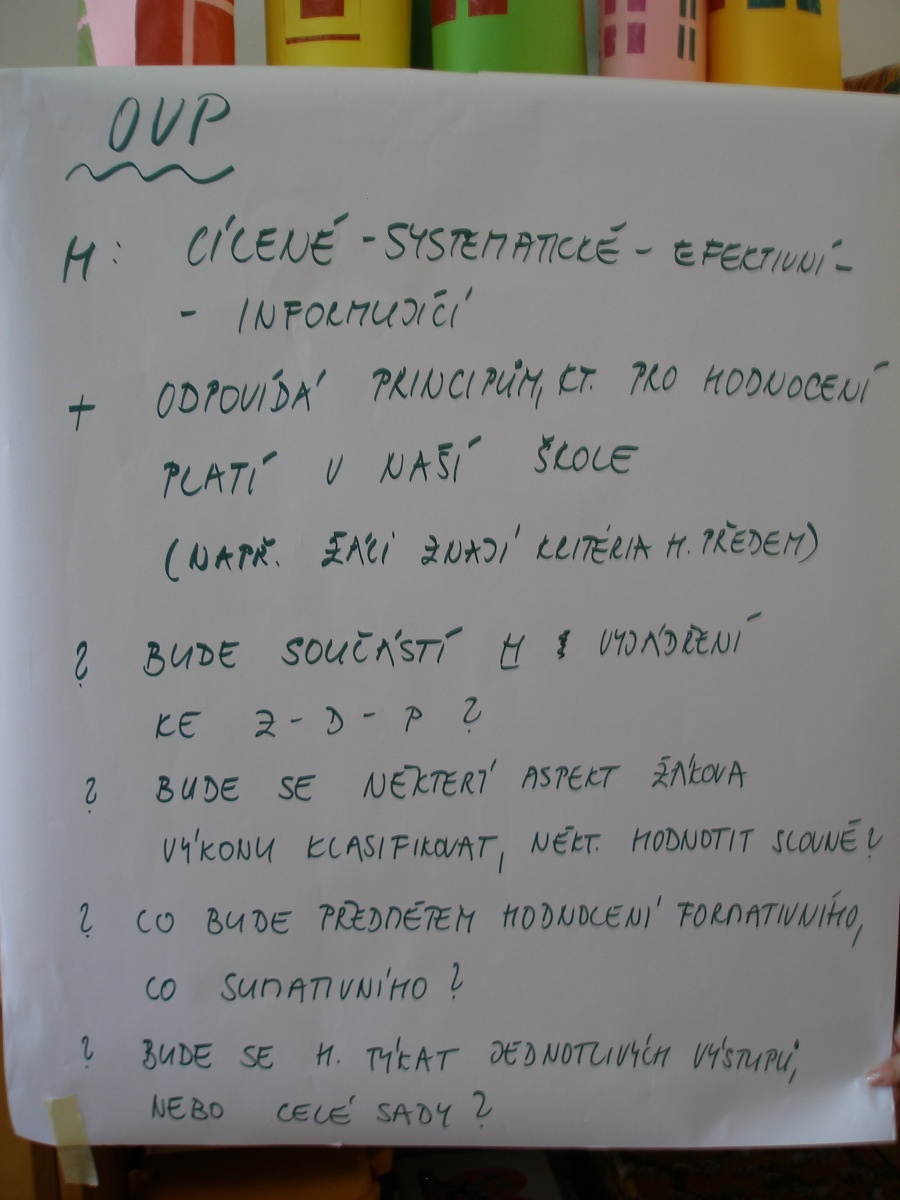 OVP
H: CÍLENÉ - SYSTEMATICKÉ - EFEKTIVNÍ -
- INFORMUJÍCÍ
+ ODPOVÍDÁ PRINCIPŮM, KT. PRO HODNOCENÍ
PLATÍ V NAŠÍ ŠKOLE
(NAPŘ. ŽÁCI ZNAJÍ KRITÉRIA H. PŘEDEM)
? BUDE SOUČÁSTÍ H VYJÁDŘENÍ
KE Z - D - P ?
? BUDE SE NĚKTERÝ ASPEKT ŽÁKOVA
VÝKONU KLASIFIKOVAT, NĚKT. HODNOTIT SLOVNĚ?
? CO BUDE PŘEDMĚTEM HODNOCENÍ FORMATIVNÍHO,
CO SUMATIVNÍHO?
? BUDE SE H. TÝKAT JEDNOTLIVÝCH VÝSTUPŮ,
NEBO CELÉ SADY?